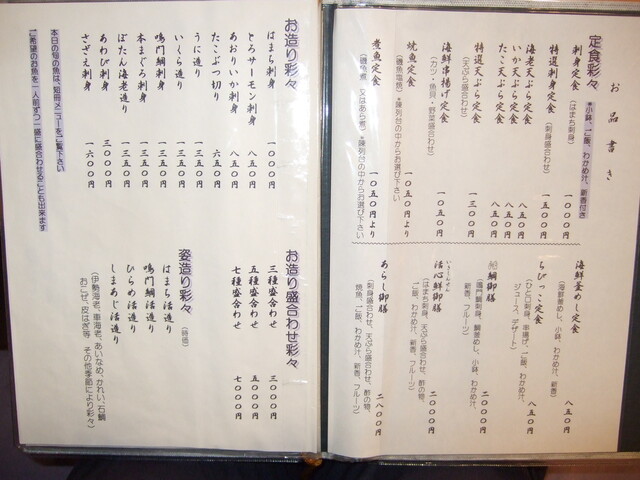 お品書き
定食彩々 *小鉢、ご飯、わかめ汁、新香付き
刺身定食 (はまち刺身) 一〇〇〇円
特選刺身定食 (刺身盛合わせ) 一五〇〇円
海老天ぷら定食 八五〇円
いか天ぷら定食 八五〇円
たこ天ぷら定食 八五〇円
特選天ぷら定食 一三〇〇円
(天ぷら盛合わせ)
海鮮串揚げ定食 一〇五〇円
(カツ・魚貝・野菜盛合わせ)
焼魚定食 一〇五〇円より
(磯魚塩焼) *陳列台の中からお選び下さい
煮魚定食 一〇五〇円より
(磯魚煮 又はあら煮) *陳列台の中からお選び下さい
海鮮釜めし定食 八五〇円
(海鮮釜めし、小鉢、わかめ汁、新香)
ちびっこ定食 八五〇円
(ひと口刺身、串揚げ、ご飯、わかめ汁、
ジュース、デザート)
鯛御膳 二〇〇〇円
(鳴門鯛刺身、鯛釜めし、小鉢、わかめ汁、
新香、フルーツ)
活心鮮御膳 二〇〇〇円
(はまち刺身、天ぷら盛合わせ、酢の物、
ご飯、わかめ汁、新香、フルーツ)
あらし御膳 二八〇〇円
(刺身盛合わせ、天ぷら盛合わせ、酢の物、
焼魚、ご飯、わかめ汁、新香、フルーツ)
お造り彩々
はまち刺身 一〇〇〇円
とろサーモン刺身 八五〇円
あおりいか刺身 八五〇円
たこぶつ切り 六五〇円
うに造り 一五〇〇円
いくら造り 一三五〇円
鳴門鯛刺身 一三五〇円
本まぐろ刺身 一三五〇円
ぼたん海老造り 一三五〇円
あわび刺身 三〇〇〇円
さざえ刺身 一六〇〇円
本日の旬の魚は、短冊メニューをご覧下さい
ご希望のお魚を一人前ずつ一盛に盛合わせることも出来ます
お造り盛合わせ彩々
三種盛合わせ 三〇〇〇円
五種盛合わせ 五〇〇〇円
七種盛合わせ 七〇〇〇円
姿造り彩々 (時価)
はまち活造り
鳴門鯛活造り
ひらめ活造り
しまあじ活造り
(伊勢海老、車海老、あいなめ、かれい、石鯛
おこぜ、皮はぎ等 その他季節により彩々)